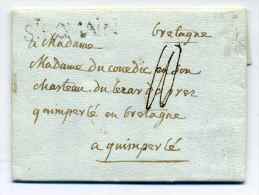 bretagne
a Madame
Madame du couedic en son
chasteau du Lezardo pres
quimperlé en bretagne
a quimperlé